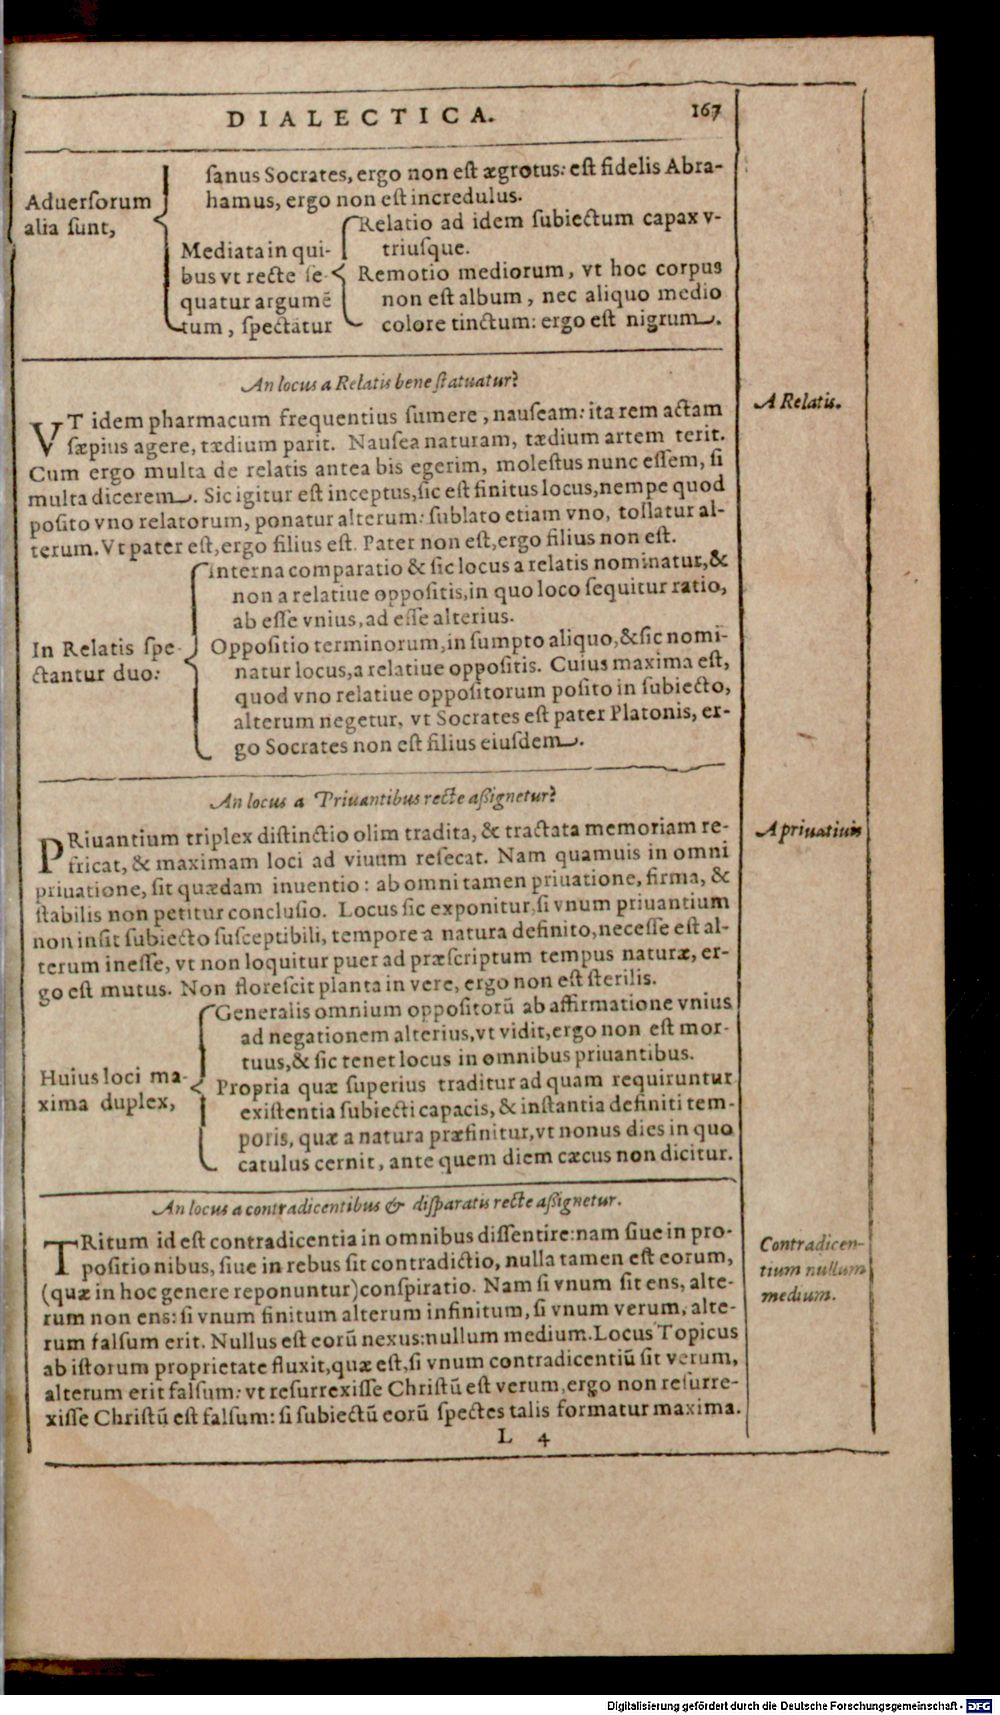 DIALECTICA.
167
ſanus Socrates, ergo non eſt ægrotus: eſt fidelis Abra-
hamus, ergo non eſt incredulus.
Aduerſorum
alia ſunt,
Mediata in qui-
bus vt recte ſe-
quatur argumē
tum, ſpectātur
Relatio ad idem ſubiectum capax v-
triuſque.
Remotio mediorum, vt hoc corpus
non eſt album, nec aliquo medio
colore tinctum: ergo eſt nigrum.
An locus a Relatis bene ſtatuatur?
A Relatis.
VT idem pharmacum frequentius ſumere, nauſeam: ita rem actam
ſæpius agere, tædium parit. Nauſea naturam, tædium artem terit.
Cum ergo multa de relatis antea bis egerim, moleſtus nunc eſſem, ſi
multa dicerem. Sic igitur eſt inceptus, ſic eſt finitus locus, nempe quod
poſito vno relatorum, ponatur alterum: ſublato etiam vno, tollatur al-
terum. Vt pater eſt, ergo filius eſt. Pater non eſt, ergo filius non eſt.
In Relatis ſpe-
ctantur duo:
Interna comparatio & ſic locus a relatis nominatur, &
non a relatiue oppoſitis, in quo loco ſequitur ratio,
ab eſſe vnius, ad eſſe alterius.
Oppoſitio terminorum, in ſumpto aliquo, & ſic nomi-
natur locus, a relatiue oppoſitis. Cuius maxima eſt,
quod vno relatiue oppoſitorum poſito in ſubiecto,
alterum negetur, vt Socrates eſt pater Platonis, er-
go Socrates non eſt filius eiuſdem.
An locus a Priuantibus recte aßignetur?
A priuatiuis
PRiuantium triplex diſtinctio olim tradita, & tractata memoriam re-
fricat, & maximam loci ad viuum reſecat. Nam quamuis in omni
priuatione, ſit quædam inuentio: ab omni tamen priuatione, firma, &
ſtabilis non petitur concluſio. Locus ſic exponitur, ſi vnum priuantium
non inſit ſubiecto ſuſceptibili, tempore a natura definito, neceſſe eſt al-
terum ineſſe, vt non loquitur puer ad præſcriptum tempus naturæ, er-
go eſt mutus. Non floreſcit planta in vere, ergo non eſt ſterilis.
Huius loci ma-
xima duplex,
Generalis omnium oppoſitorū ab affirmatione vnius
ad negationem alterius, vt vidit, ergo non eſt mor-
tuus, & ſic tenet locus in omnibus priuantibus.
Propria quæ ſuperius traditur ad quam requiruntur
exiſtentia ſubiecti capacis, & inſtantia definiti tem-
poris, quæ a natura præfinitur, vt nonus dies in quo
catulus cernit, ante quem diem cæcus non dicitur.
An locus a contradicentibus & diſparatis recte aßignetur.
TRitum id eſt contradicentia in omnibus diſſentire: nam ſiue in pro-
poſitionibus, ſiue in rebus ſit contradictio, nulla tamen eſt eorum,
(quæ in hoc genere reponuntur) conſpiratio. Nam ſi vnum ſit ens, alte-
rum non ens: ſi vnum finitum alterum infinitum, ſi vnum verum, alte-
rum falſum erit. Nullus eſt eorū nexus: nullum medium. Locus Topicus
ab iſtorum proprietate fluxit, quæ eſt, ſi vnum contradicentiū ſit verum,
alterum erit falſum: vt reſurrexiſſe Chriſtū eſt verum, ergo non reſurre-
xiſſe Chriſtū eſt falſum: ſi ſubiectū eorū ſpectes talis formatur maxima.
Contradicen-
tium nullum
medium.
L 4
Digitalisierung gefördert durch die Deutsche Forschungsgemeinschaft - DFG